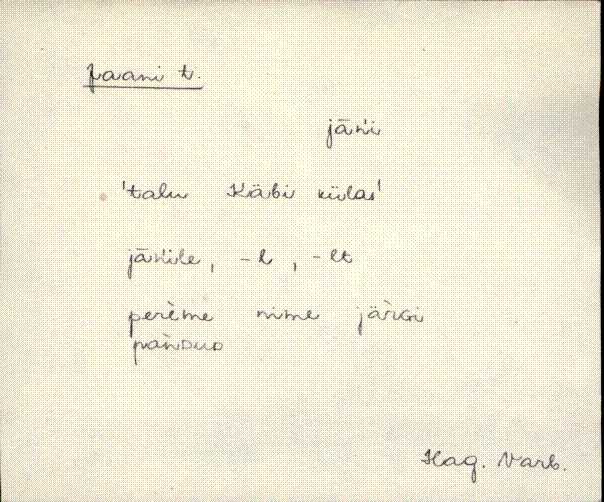 Jaani t.
jāńi
'talu Käbi külas'
jāńile, -l, -lt
perème nime järGi
pańDuD
Hag. Varb.